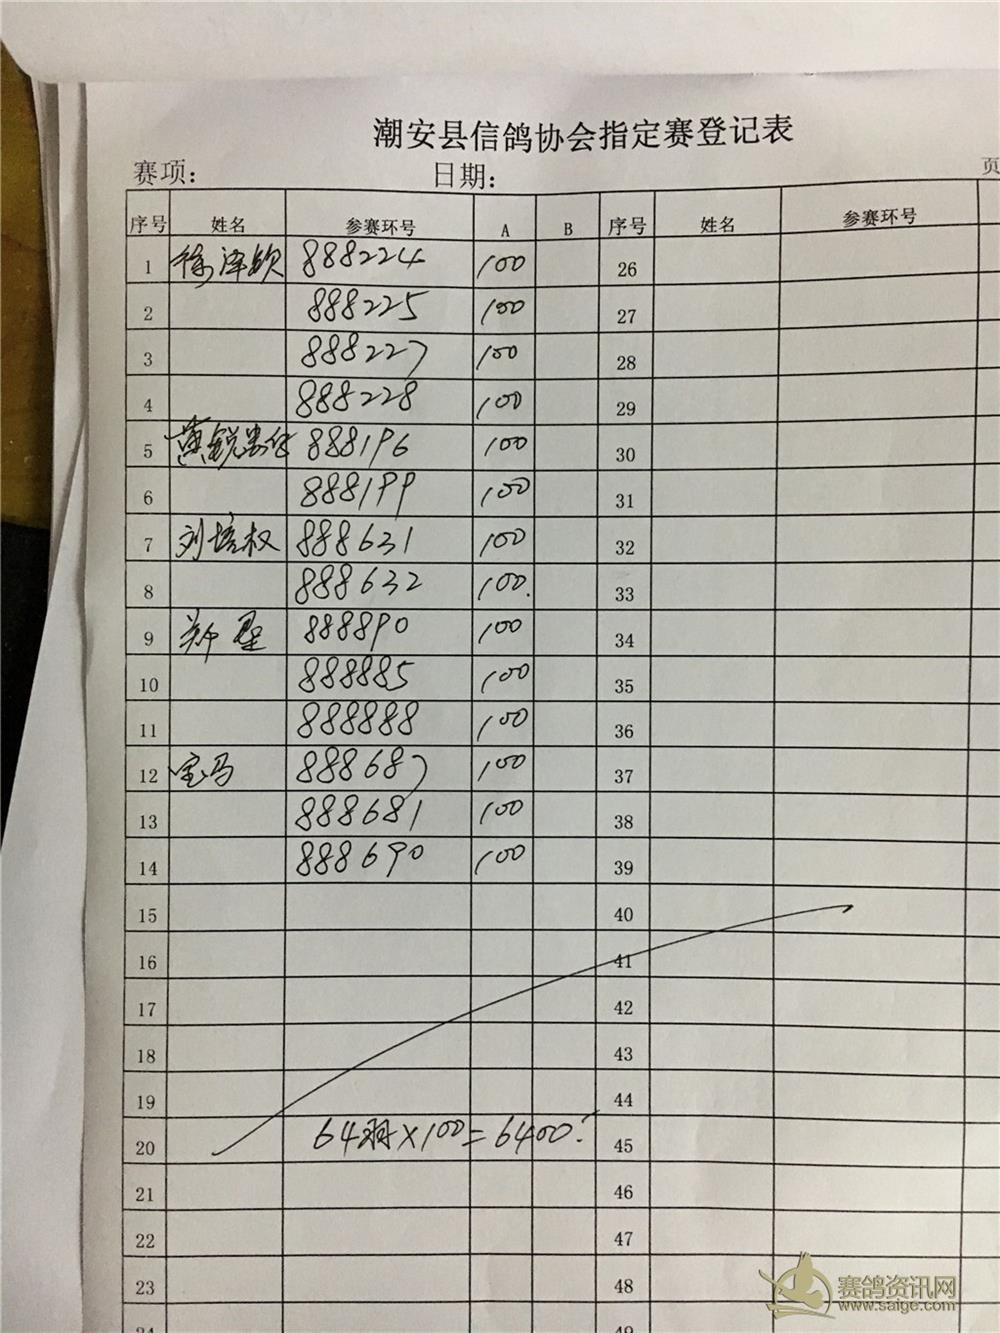 潮安县信鸽协会指定赛登记表
赛项: 日期: 页
序号 姓名 参赛环号 A B 序号 姓名 参赛环号
1 徐泽钦 888224 100 26
2 888225 100 27
3 888227 100 28
4 888228 100 29
5 黄锐 888196 100 30
6 888199 100 31
7 刘培权 888631 100 32
8 888632 100. 33
9 郑 888890 100 34
10 888885 100 35
11 888888 100 36
12 宝马 888687 100 37
13 888681 100 38
14 888690 100 39
15 40
16 41
17 42
18 43
19 44
20 64羽×100=6400 45
21 46
22 47
23 48
24 49
赛鸽资讯网
www.saige.com